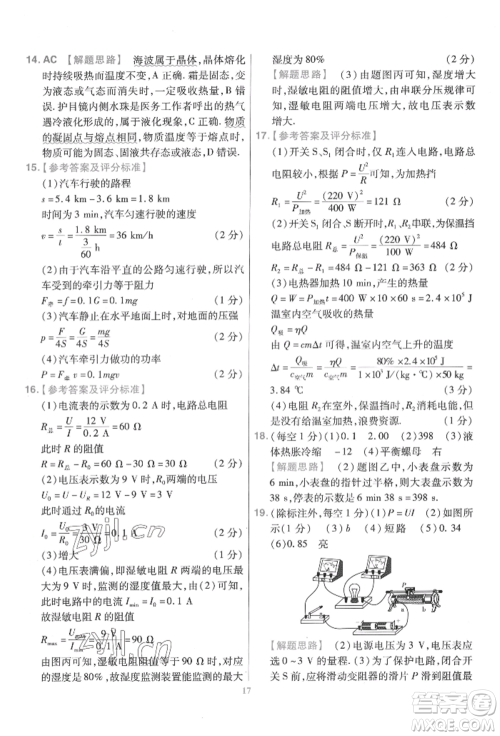 14. AC 【解题思路】 海波属于晶体,晶体熔化
时持续吸热而温度不变,A 正确. 霜的形成是由
气态变为固态,是凝华现象,B 错误. 露的形成是
护目镜内侧水珠是医务工作者呼出的热气
遇冷液化形成的,故 C 正确. 同种物质
的凝固点与熔点相同,物质温度等于凝固点时,
物质可能处于固态或液态,故 D 错误.
15. 【参考答案及评分标准】
(1)汽车行驶的路程
s = 5.4 km - 3.6 km = 1.8 km
时间为 3 min,汽车匀速行驶的速度
v = s/t = 1.8 km / (3/60 h) = 36 km/h (2 分)
(2)由于汽车沿平直的公路匀速行驶,汽车
受到的牵引力等于阻力
F牵 = f = 0.1G = 0.1mg (1 分)
(3)汽车静止在水平地面上时,对地面的压强
p = F/4S = G/4S = mg/4S (2 分)
(4)汽车牵引力做功的功率
P = F牵v = fv = 0.1mgv (2 分)
16. 【参考答案及评分标准】
(1)电流表的示数为 0.2 A 时,电路总电阻
R总 = U/I = 12 V/0.2 A = 60 Ω
此时 R 的阻值
R = R总 - R0 = 60 Ω - 30 Ω = 30 Ω (2 分)
(2)电压表示数为 9 V 时,R0 两端的电压
U0 = U - UR = 12 V - 9 V = 3 V
此时通过 R0 的电流
I0 = U0/R0 = 3 V/30 Ω = 0.1 A (2 分)
(3)增大 (1 分)
(4)电压表满偏,即湿敏电阻 R 两端的电压
为 9 V 时,监测的湿度最大. 由(2)可知,
此时电路中的电流最大 I = 0.1 A
故湿敏电阻的阻值
Rmax = Umax/I = 9 V/0.1 A = 90 Ω
由图丙可知,湿敏电阻阻值为 90 Ω 时,对应
的湿度是 80%,故湿度计能够监测的最大
湿度为 80% (2 分)
【解题思路】 (3)由题图丙可知,湿度增大
时,湿敏电阻的阻值增大,由串联分压规律可
知,湿敏电阻两端电压增大,故电压表示数
增大.
17. 【参考答案及评分标准】
(1)开关 S、S1 闭合时,只有 R1 连入电路,电
路的总电阻最小,根据 P = U²/R 可知,为加热挡
R1 = U²/P加热 = (220 V)²/400 W = 121 Ω (2 分)
(2)开关 S 闭合、S1 断开时,R1、R2 串联,为保温挡
电路总电阻 R总 = U²/P保温 = (220 V)²/100 W = 484 Ω
R2 = R总 - R1 = 484 Ω - 121 Ω = 363 Ω (2 分)
(3)电热器加热 10 min,产生的热量
Q = W = P加热t = 400 W × 10 × 60 s = 2.4 × 10⁵ J
温室内空气吸收的热量
Q吸 = ηQ
由 Q = cmΔt 可知,温室内空气上升的温度
Δt = Q吸/c空气m = ηQ/c空气m = 80% × 2.4 × 10⁵ J / 1 × 10³ J/(kg·℃) × 50 kg =
3.84 ℃ (2 分)
(4)电阻 R2 在室外,保温挡时,R2 消耗电能,
但没有给温室内供热,浪费资源 (2 分)
18. (每空 1 分)(1)0.1 2.00 (2)398 (3)液
体热胀冷缩 -12 (4)平衡螺母 右
【解题思路】 (2)题图乙中,小表盘示数为
6 min,小表盘的指针过半格,大表盘示数为
38 s,停表示数为 6 × 60 s + 38 s = 398 s.
19. (除标注外,每空 1 分)(1)P = UI (2)如图
所示(2 分) (3)b (4)短路 (5)0.34
(6)0.85 亮
【解题思路】 (2)电源电压为 3 V,电压表应
选 0~3 V 的量程. (3)为了保护电路,闭合
开关前,应将滑动变阻器的滑片 P 滑到阻值最
17
zyjl.cn
作业精灵